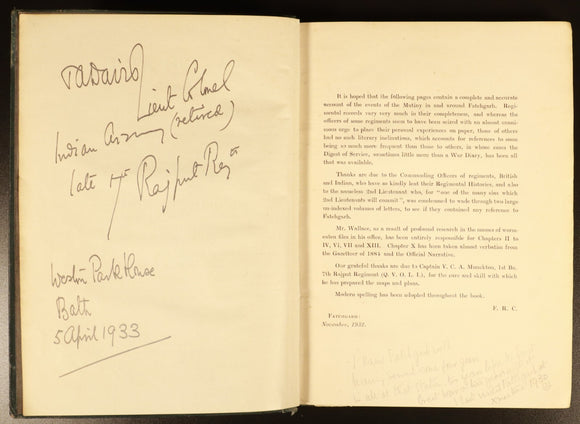 Lieut Colonel
Indian Army (retired)
late 7th Rajput Regt
Weston Park House
Bath
5 April 1933
It is hoped that the following pages contain a complete and accurate
account of the events of the Mutiny in and around Fatehgarh. Regi-
mental records vary very much in their completeness, and whereas the
officers of some regiments seem to have been seized with an almost unani-
mous urge to place their personal experiences on paper, those of others
had no such literary inclinations, which accounts for references to some
being so much more frequent than those to others, in whose cases the
Digest of Service, sometimes little more than a War Diary, has been all
that was available.
Thanks are due to the Commanding Officers of regiments, British
and Indian, who have so kindly lent their Regimental Histories, and also
to the nameless 2nd Lieutenant who, for "one of the many sins which
2nd Lieutenants will commit", was condemned to wade through two large
un-indexed volumes of letters, to see if they contained any reference to
Fatehgarh.
Mr. Wallace, as a result of profound research in the masses of worm-
eaten files in his office, has been entirely responsible for Chapters II to
IV, VI, VII and XIII. Chapter X has been taken almost verbatim from
the Gazetteer of 1884 and the Official Narrative.
Our grateful thanks are due to Captain V. C. A. Munckton, 1st Bn.
7th Rajput Regiment (Q. V. O. L. I.), for the care and skill with which
he has prepared the maps and plans.
Modern spelling has been adopted throughout the book.
F. R. C.
Fatehgarh:
November, 1932.